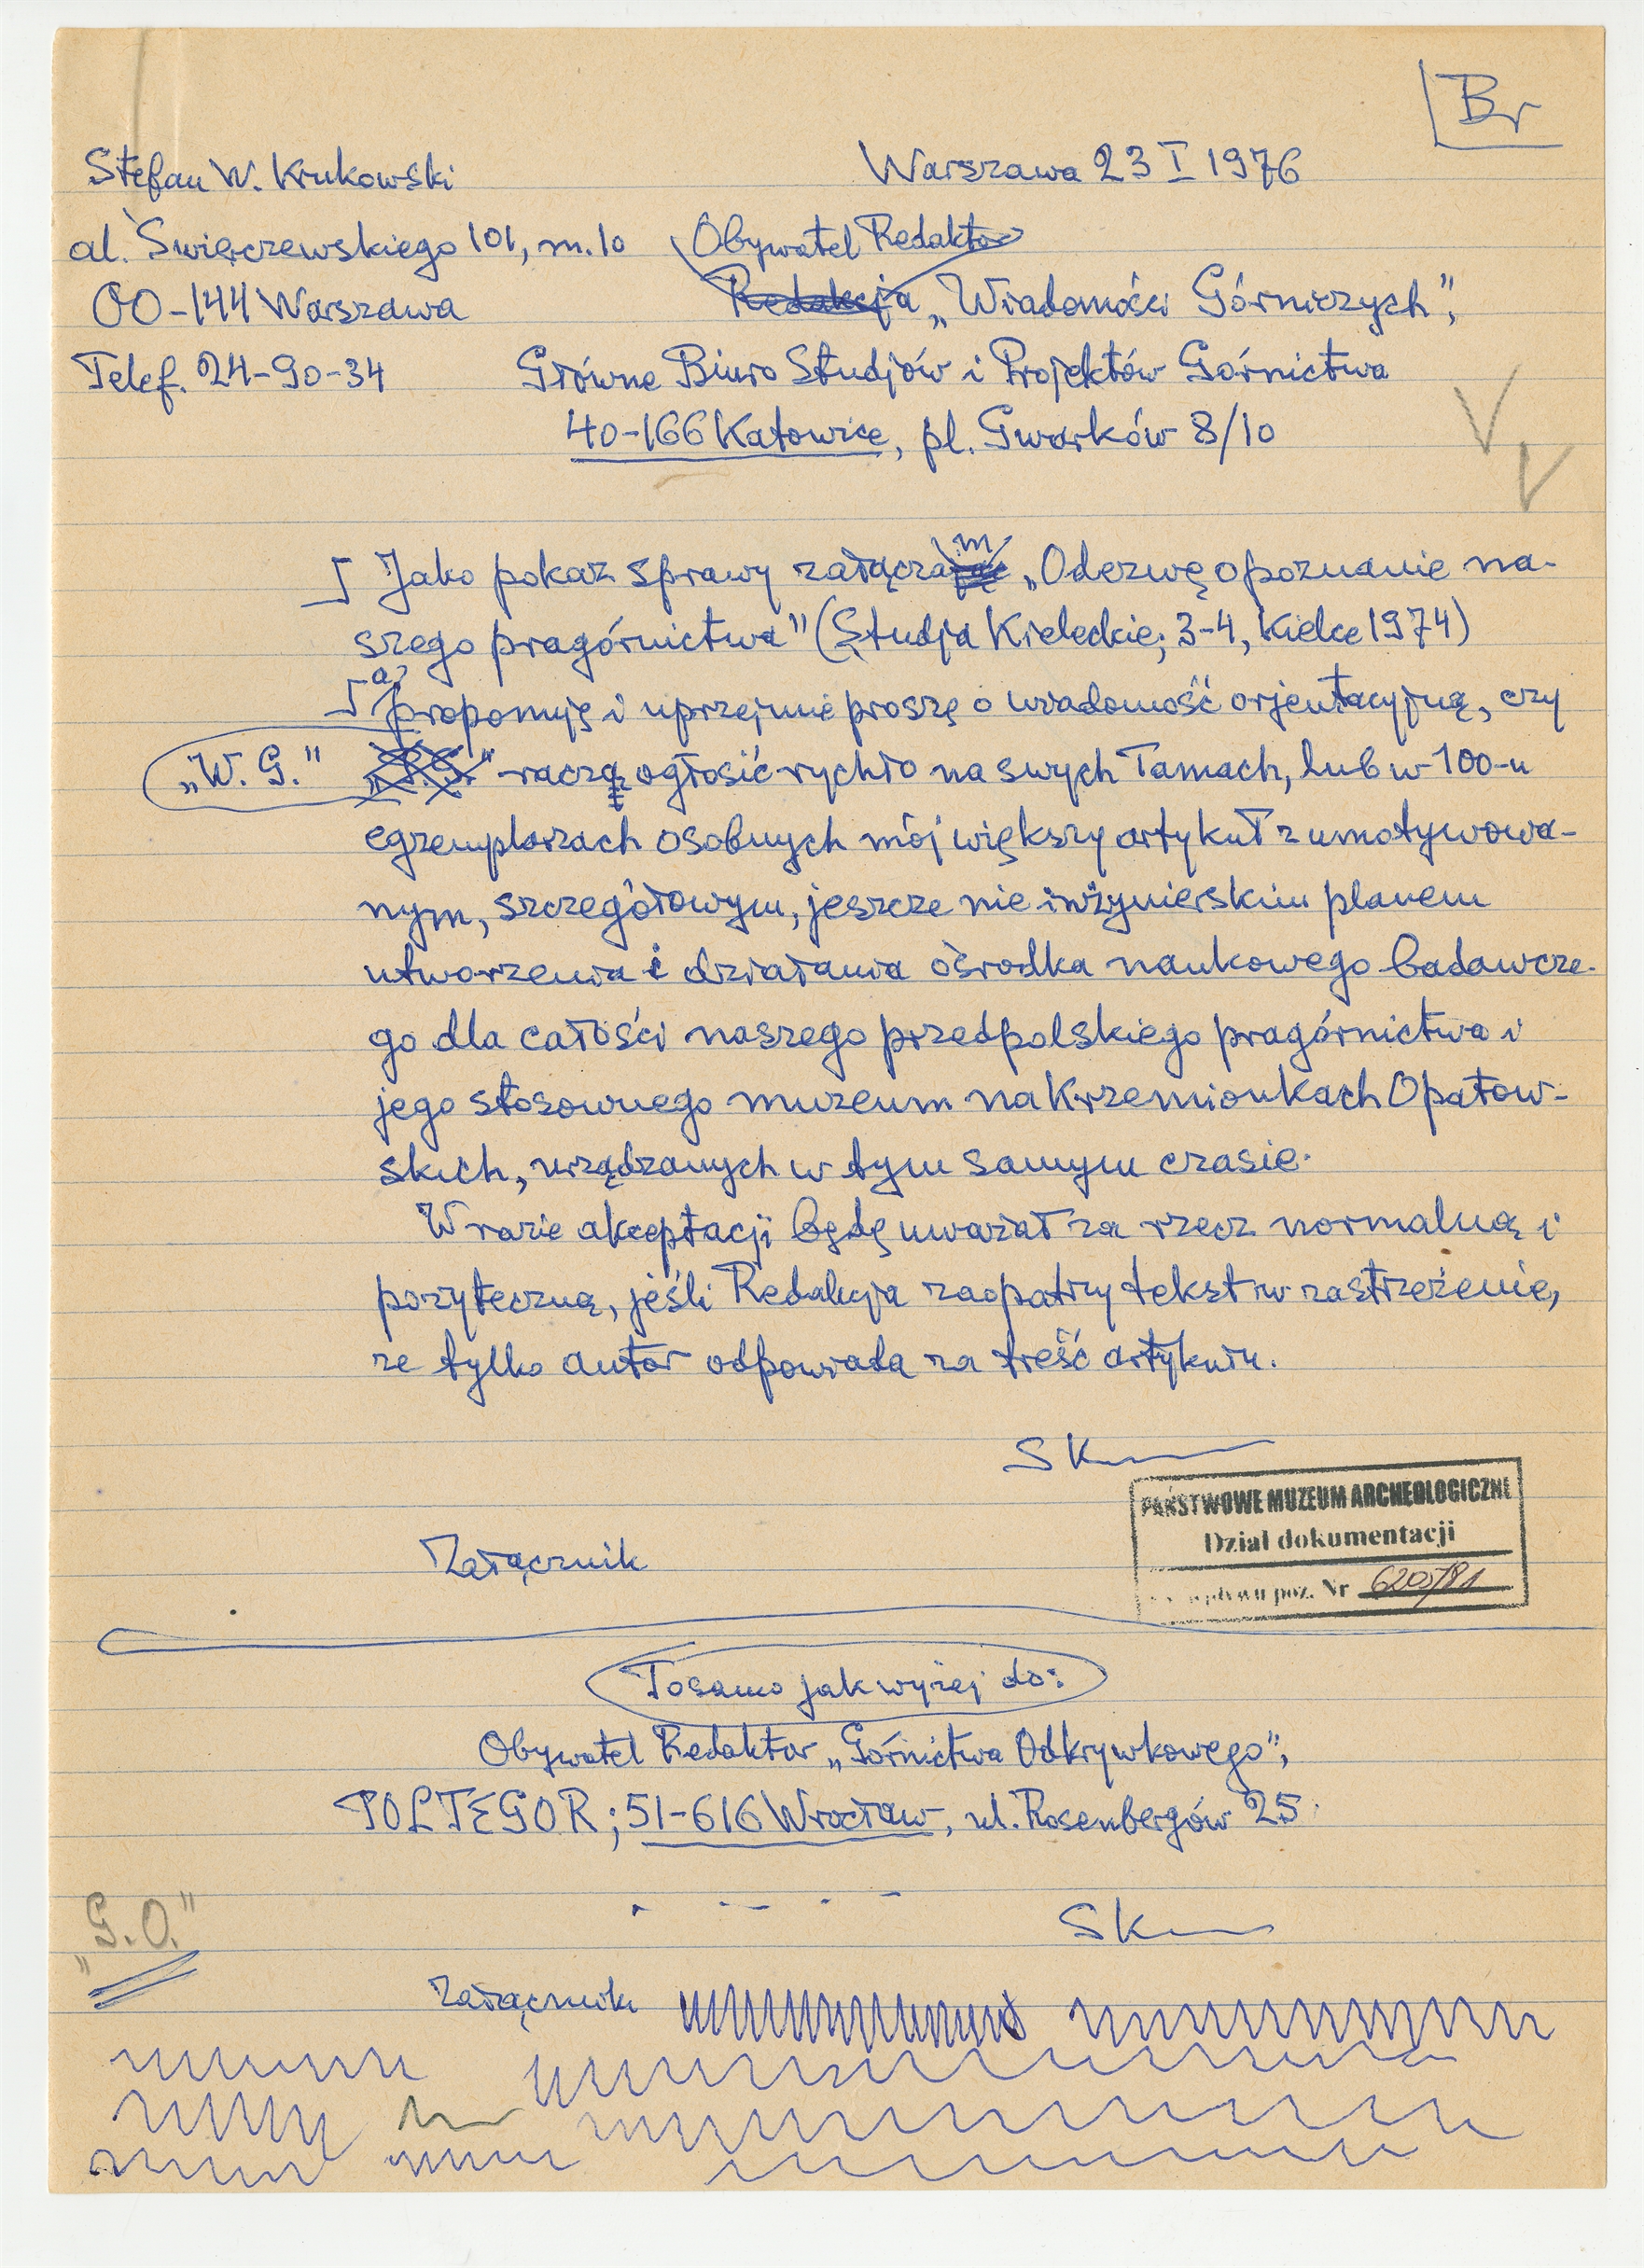 Br
Stefan W. Krukowski
Warszawa 23 I 1976
al. Świerczewskiego 101, m. 10
Obywatel Redaktor
00-144 Warszawa
Redakcja „Wiadomości Górniczych”,
Telef. 24-90-34
Główne Biuro Studjów i Projektów Górnictwa
40-166 Katowice, pl. Gwarków 8/10
Jako pokaz sprawy załączam „Odezwę o poznanie na-
szego pragórnictwa” (Studja Kieleckie; 3-4, Kielce 1974)
a proponuję i uprzejmie proszę o wiadomość orjentacyjną, czy
„W. G.” raczą ogłosić rychło na swych łamach, lub w 100-u
egzemplarzach osobnych mój większy artykuł z umotywowa-
nym, szczegółowym, jeszcze nie inżynierskim planem
utworzenia i działania ośrodka naukowego badawcze-
go dla całości naszego przedpolskiego pragórnictwa i
jego stosownego muzeum na Krzemionkach Opatow-
skich, urządzanych w tym samym czasie.
W razie akceptacji będę uważał za rzecz normalną i
pożyteczną, jeśli Redakcja zaopatrzy tekst w zastrzeżenie,
że tylko autor odpowiada za treść artykułu.
SK
PAŃSTWOWE MUZEUM ARCHEOLOGICZNE
Dział dokumentacji
Załącznik
wpływu poz. Nr 6205/81
Tosamo jak wyżej do:
Obywatel Redaktor „Górnictwa Odkrywkowego”,
POLTEGOR; 51-616 Wrocław, ul. Rosenbergów 25
SK
„G.O.”
Załącznik